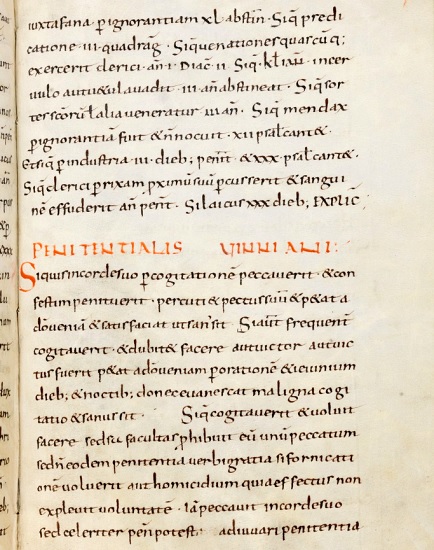 iuxta sana · p ignorantiam xl abstin̄ · Siq̄ predi
catione · iii · quadrag̃ · Siq̄ uenationes quascuq;
exercerit clerici · an̄ · i · Diac̄ · ii · Siq̄ · incer
uulo aut uetula uadit · iii · an̄ abstineat · Siq̄ sor
tes scōrū ł alia ueneratur · iii · an̄ · Siq̄ mendax
p ignorantiā fuit & n̄ nocuit · xii psal̄ cant& ·
Et siq̄ p industria · iii · dieb; penit̄ · & xxx · psal̄ cant& ·
Siq̄ clerici p rixam pximū suū pcusserit & sangui
nē effuderit an̄ penit̄ · Si laicus xxx dieb; EXPLIC̄
PENITENTIALIS VINNIANI :
Siquis in corde suo p cogitationē peccauerit · & con
festim penituerit · percuti& pectus suū & p&at a
dō ueniā & satisfaciat ut sanꝰ sit · Si aut̄ frequent̄
cogitauerit · & dubit& facere aut uictor aut uic
tus fuerit p&at a dō ueniam p orationē & ieiunium
dieb; & noctib; donec euanescat maligna cogi
tatio & sanus sit · Siq̄ cogitauerit & uoluit
facere sed si facultas phibuit eū unū peccatum
sed n̄ eodem penitentia uerbi gratia si fornicati
onē uoluerit aut homicidium quia effectus non
expleuit uoluntatē · iā peccauit in corde suo
sed celeriter pen̄ potest adiuuari penitentia